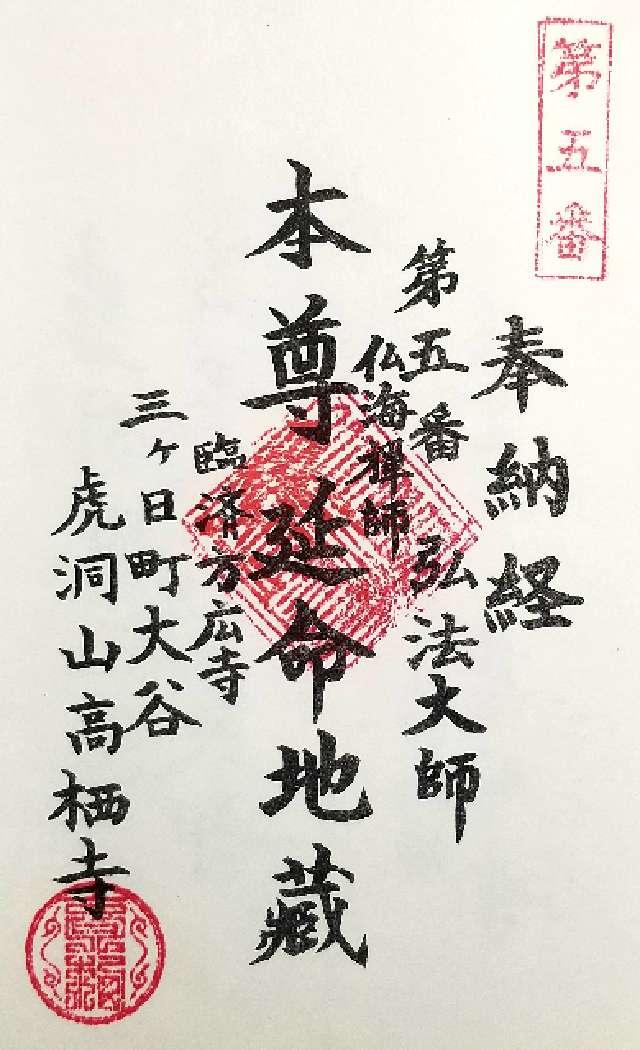 第五番
奉納経
第五番 弘法大師
仏海禅師
本尊延命地蔵
臨済方広寺
三ヶ日町大谷
虎洞山高栖寺